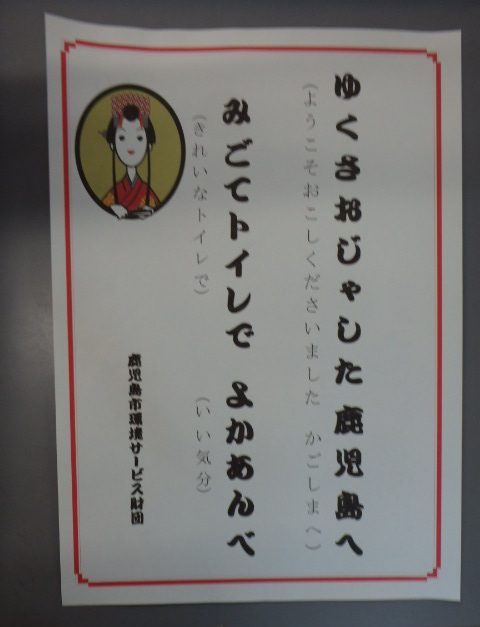 ゆくさおじゃした鹿児島へ
(ようこそおこしくださいました　かごしまへ)
みごてトイレで　よかあんべ
(きれいなトイレで)　(いい気分)
鹿児島市環境サービス財団